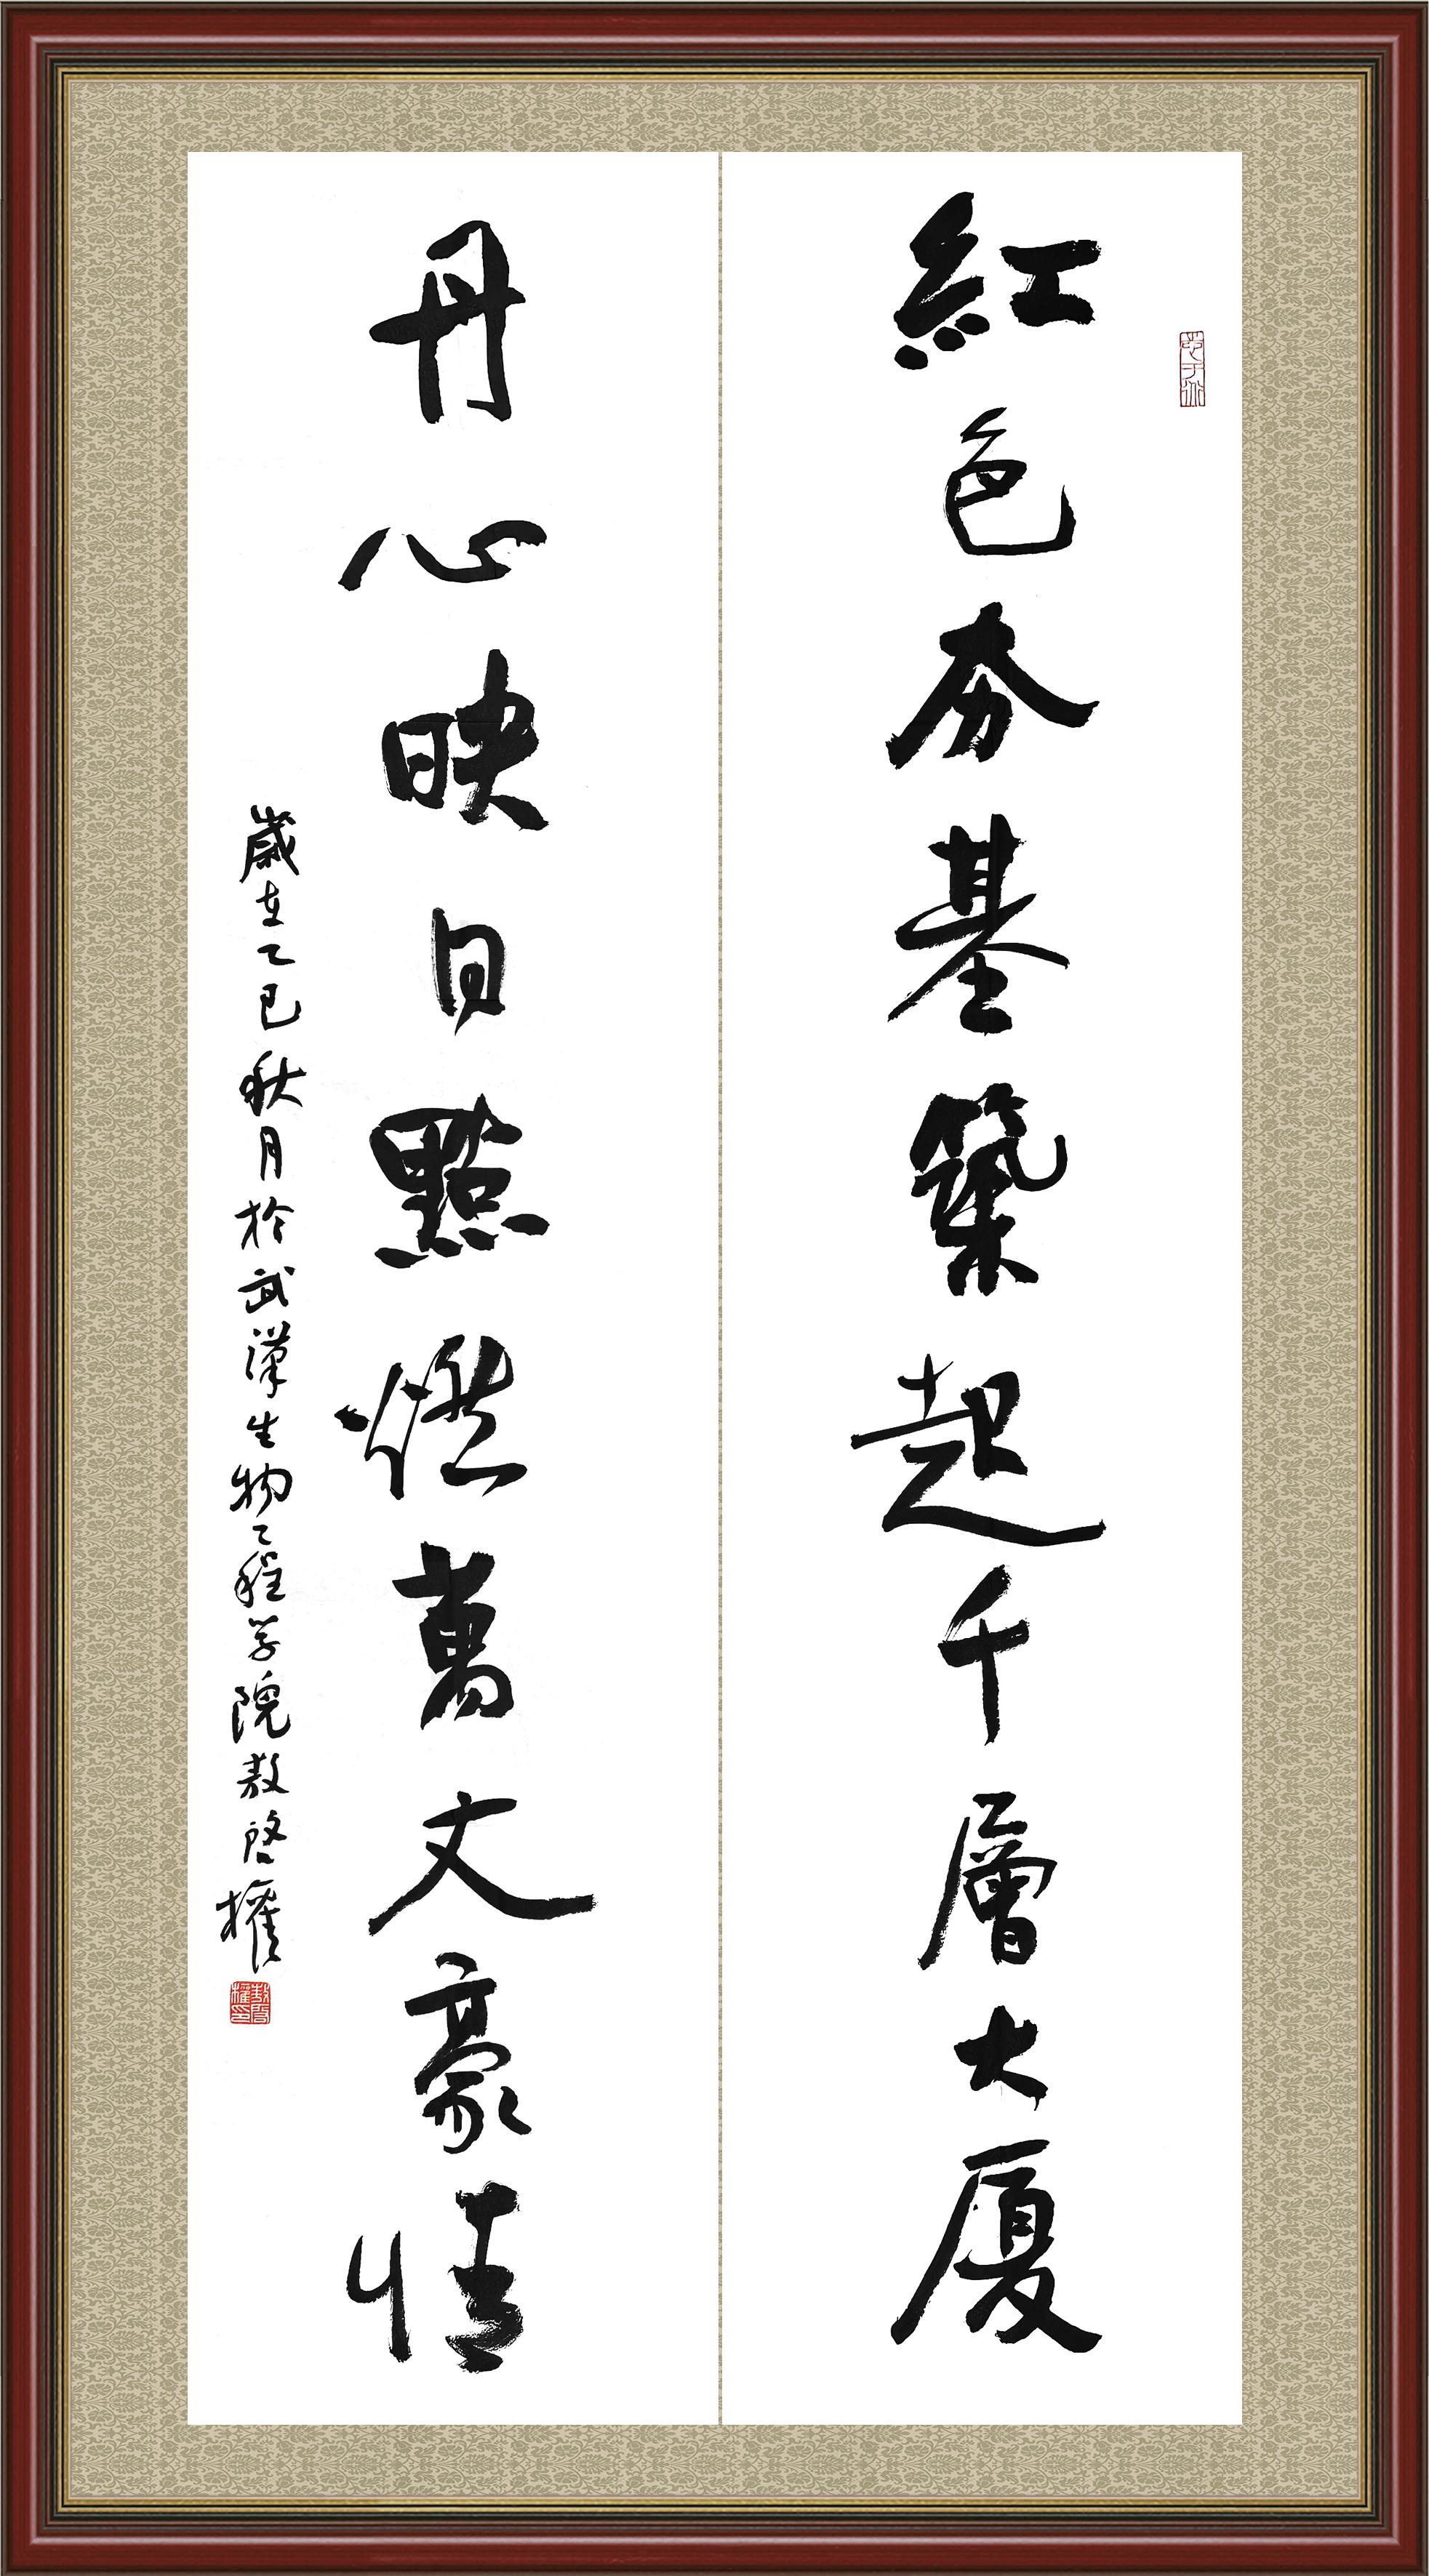 紅色夯基築起千層大厦
丹心映日點燃萬丈豪情
歲在乙巳秋月於武漢生物工程学院敖啓權
敖啓權印